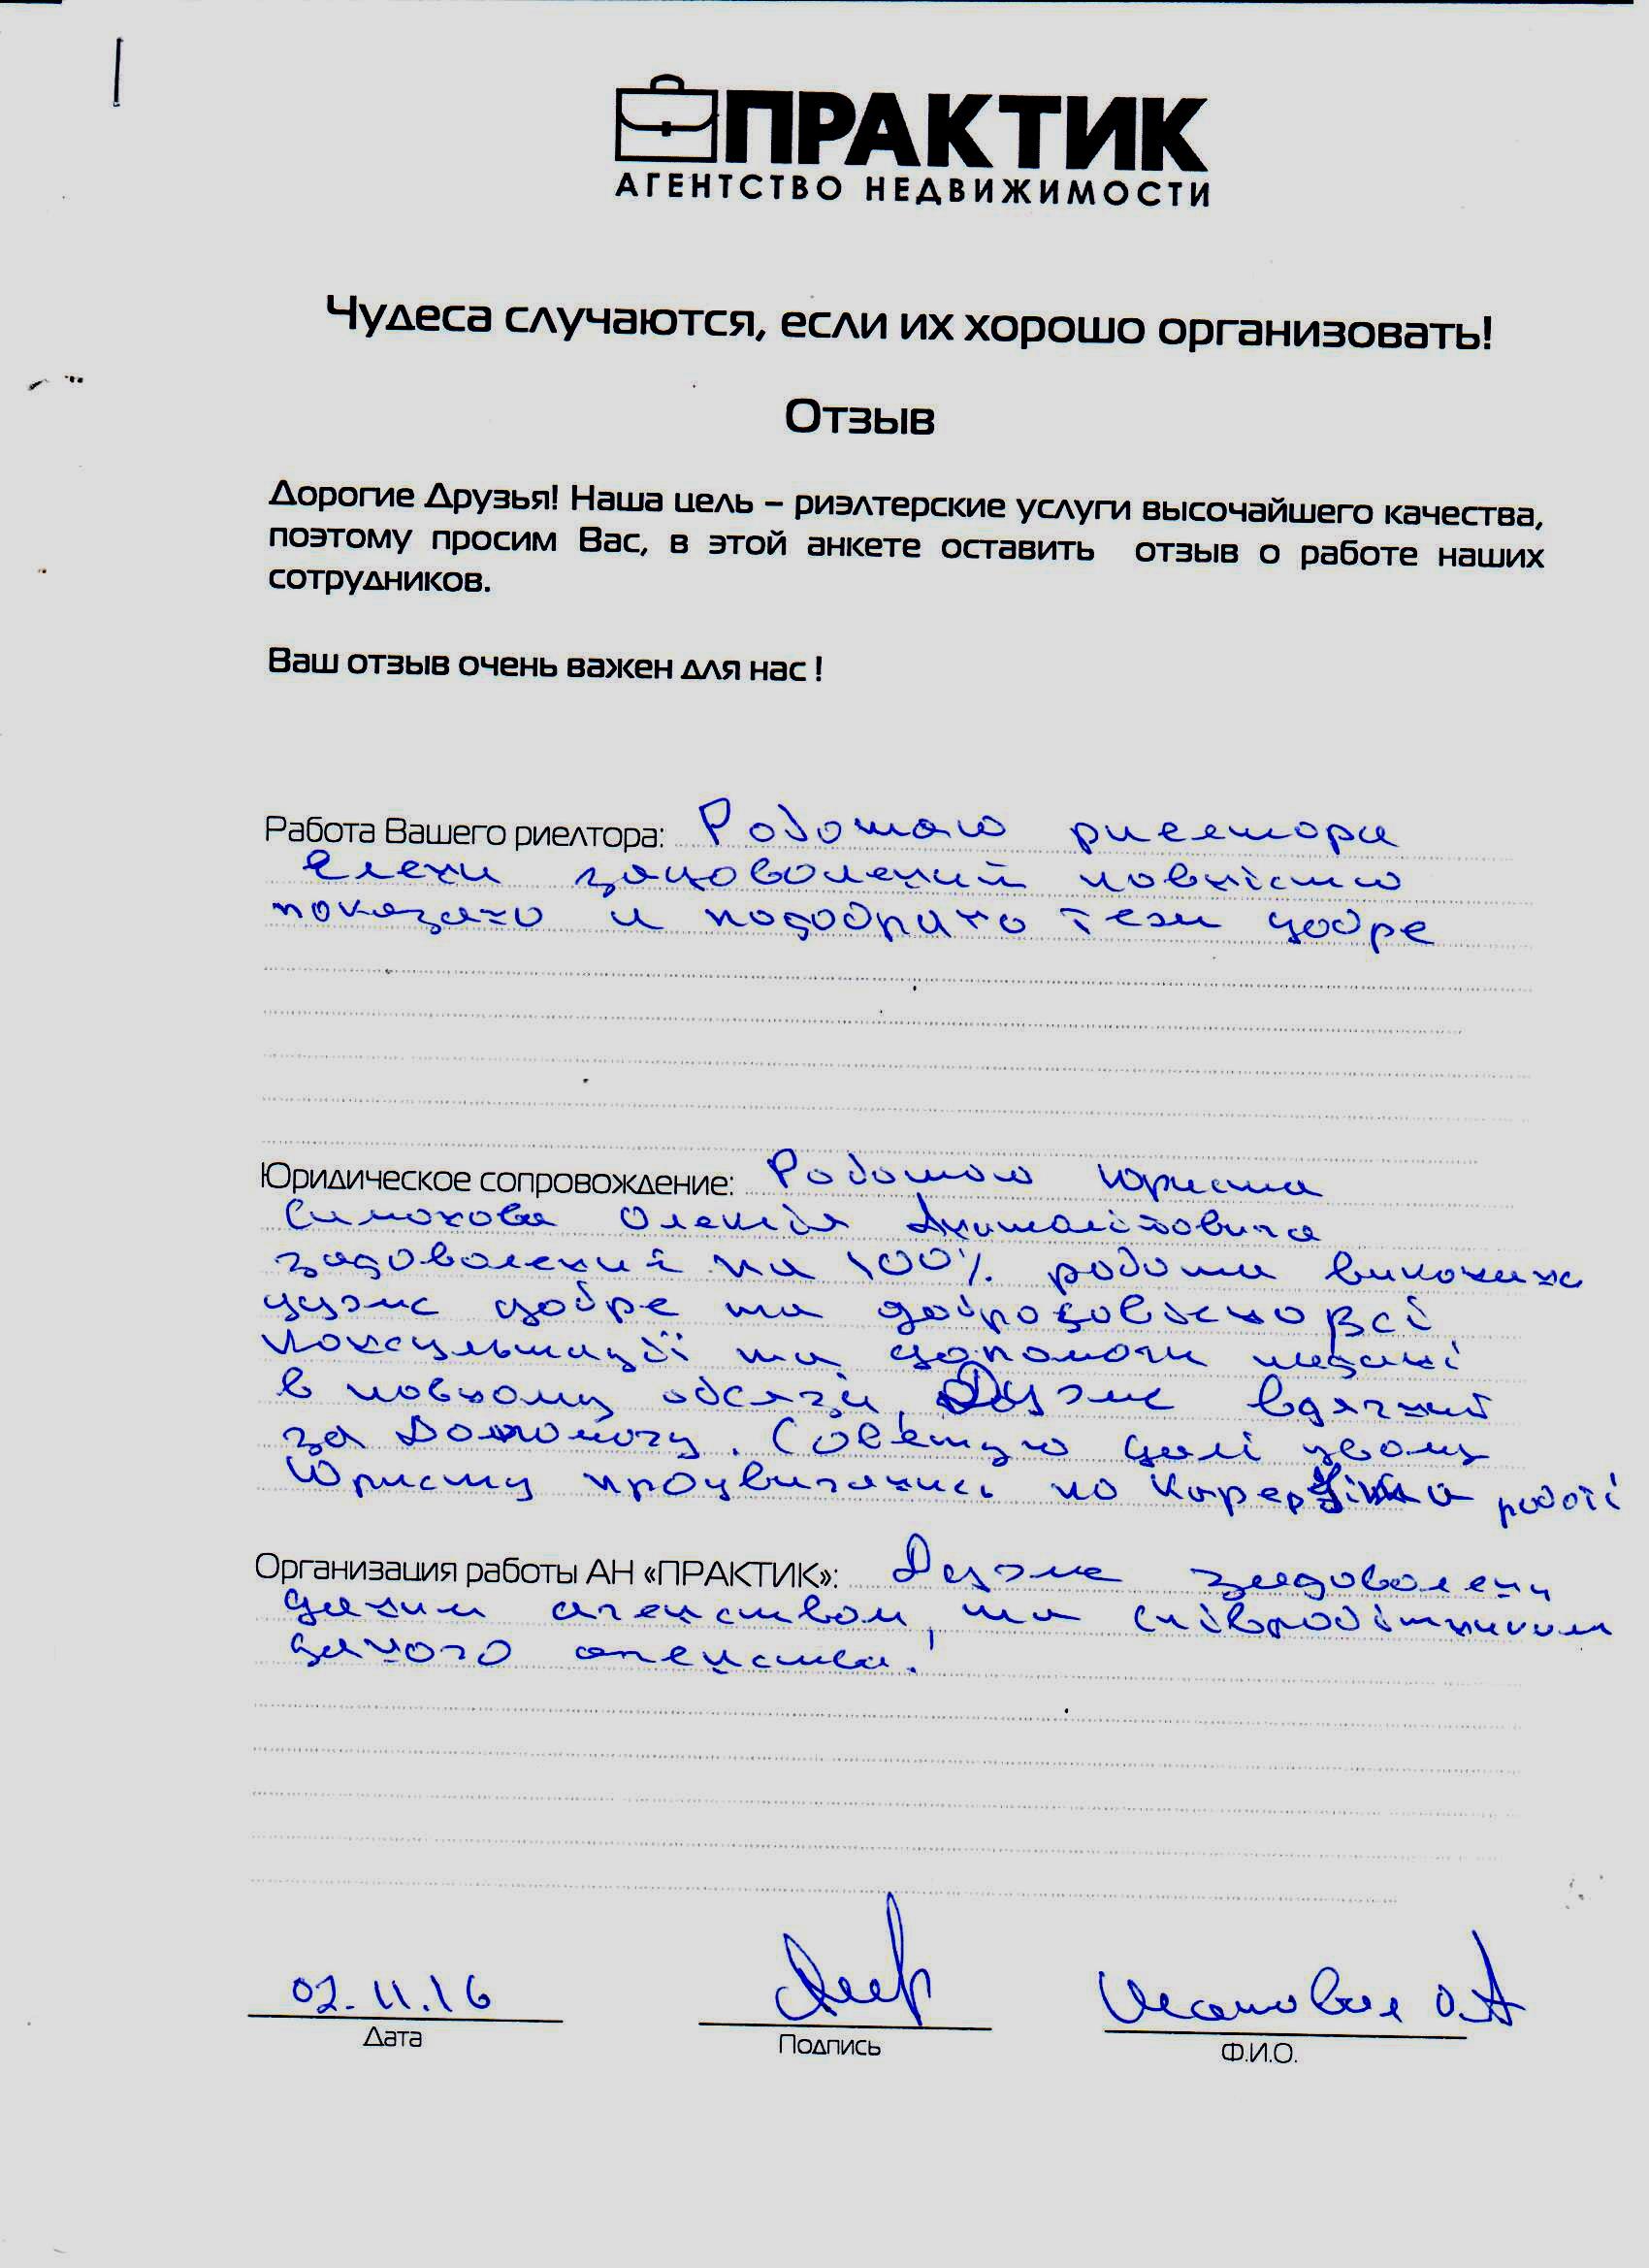 ПРАКТИК
АГЕНТСТВО НЕДВИЖИМОСТИ
Чудеса случаются, если их хорошо организовать!
Отзыв
Дорогие Друзья! Наша цель – риэлтерские услуги высочайшего качества,
поэтому просим Вас, в этой анкете оставить отзыв о работе наших
сотрудников.
Ваш отзыв очень важен для нас !
Работа Вашего риелтора: Роботою риелтора
Елени задоволений повністю
показано и подобрано теж добре
Юридическое сопровождение: Роботою юриста
Олексія
задоволений на 100% робота виконана
дуже добре та добросовісно всі
консультації та допомоги надані
в повному обсязі. Дуже вдячний
за допомогу. Совєтую далі цьому
юристу продвигатись по карєрі в роботі
Организация работы АН «ПРАКТИК»: Дуже задоволени
даним агенством, та співробітником
даного агенства!
02.11.16
Дата
Подпись
Ф.И.О.